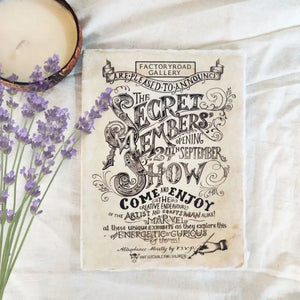 FACTORYROAD
GALLERY
ARE PLEASED TO ANNOUNCE
THE
SECRET
MEMBERS'
OPENING
24TH SEPTEMBER
SHOW
COME AND ENJOY
THE
CREATIVE ENDEAVOURS
OF THE ARTIST AND CRAFTSMAN ALIKE!
MARVEL
at these unique exhibits as they explore this
ENERGETIC & CURIOUS
Attendance Strictly by R.S.V.P.
NOT SUITABLE FOR CHILDREN